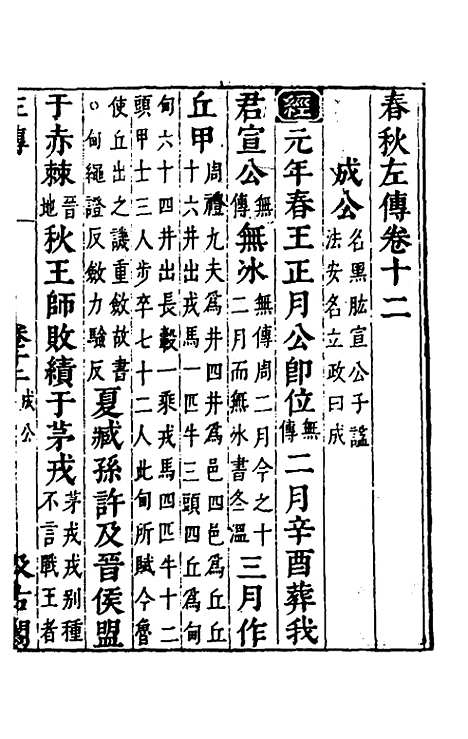 春秋左傳卷十二
成公名黑肱宣公子謚法安名立政曰成
經元年春王正月公即位無傳二月辛酉葬我
君宣公無傳無冰無傳周二月今之十二月而無冰書冬溫三月作
丘甲周禮九夫爲井四井爲邑四邑爲丘丘十六井出戎馬一匹牛三頭四丘爲甸
甸六十四井出長轂一乘戎馬四匹牛十二頭甲士三人步卒七十二人此甸所賦今魯
使丘出之譏重斂故書○甸繩證反斂力驗反夏臧孫許及晉侯盟
于赤棘晉地秋王師敗績于茅戎茅戎戎别種不言戰王者
左傳 卷十二 成公 汲古閣